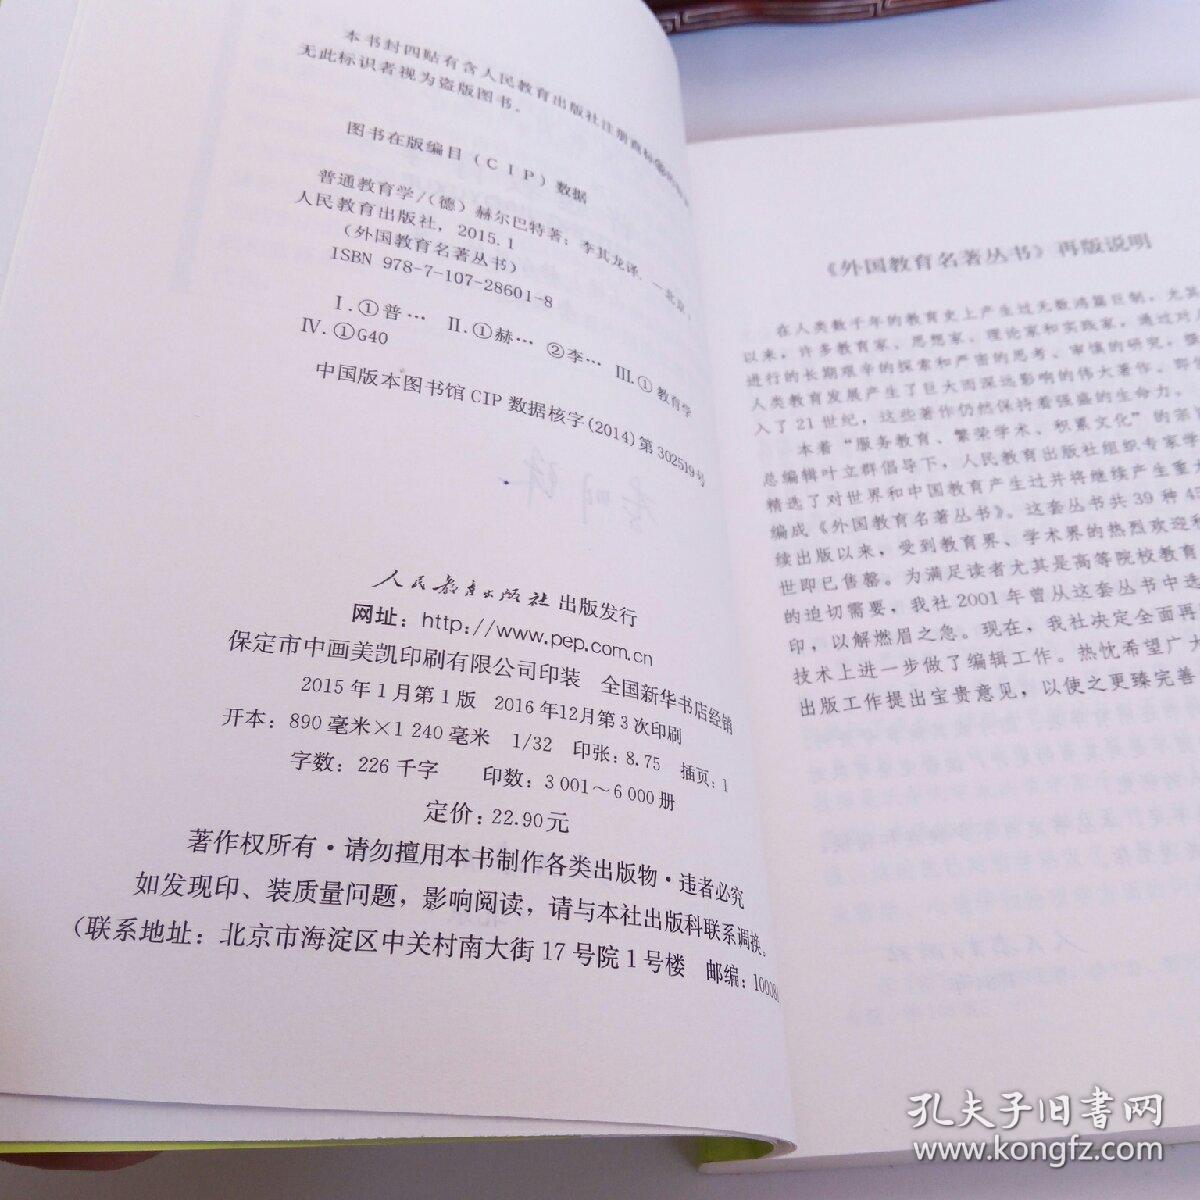 本书封四贴有含人民教育出版社注册商标
无此标识者视为盗版图书。
图书在版编目（CIP）数据
普通教育学/（德）赫尔巴特著；李其龙译. —北京：
人民教育出版社，2015.1
（外国教育名著丛书）
ISBN 978-7-107-28601-8
Ⅰ.①普… Ⅱ.①赫… ②李… Ⅲ.①教育学
Ⅳ.①G40
中国版本图书馆CIP数据核字(2014)第302519号
人民教育出版社 出版发行
网址：http://www.pep.com.cn
保定市中画美凯印刷有限公司印装 全国新华书店经销
2015年1月第1版 2016年12月第3次印刷
开本：890毫米×1 240毫米 1/32 印张：8.75 插页：1
字数：226千字 印数：3 001～6 000册
定价：22.90元
著作权所有·请勿擅用本书制作各类出版物·违者必究
如发现印、装质量问题，影响阅读，请与本社出版科联系调换。
（联系地址：北京市海淀区中关村南大街17号院1号楼 邮编：100081
《外国教育名著丛书》再版说明
在人类数千年的教育史上产生过无数鸿篇巨制，尤其
以来，许多教育家、思想家、理论家和实践家，通过对
进行的长期艰辛的探索和严密的思考、审慎的研究，
人类教育发展产生了巨大而深远影响的伟大著作。即
入了21世纪，这些著作仍然保持着强盛的生命力。
本着“服务教育、繁荣学术、积累文化”的宗
总编辑叶立群倡导下，人民教育出版社组织专家学
精选了对世界和中国教育产生过并将继续产生重大
编成《外国教育名著丛书》。这套丛书共39种4
续出版以来，受到教育界、学术界的热烈欢迎和
世即已售罄。为满足读者尤其是高等院校教育
的迫切需要，我社2001年曾从这套丛书中选
印，以解燃眉之急。现在，我社决定全面再
技术上进一步做了编辑工作。热忱希望广大
出版工作提出宝贵意见，以使之更臻完善
孔夫子旧书网
www.kongfz.com